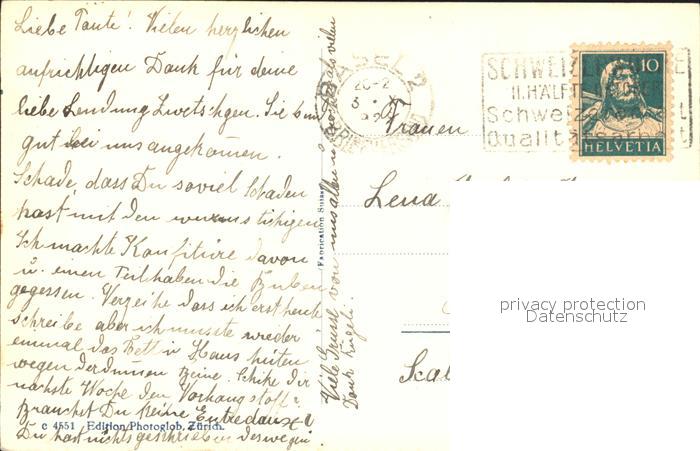 Liebe Tante! Vielen herzlichen
aufrichtigen Dank für deine
liebe Sendung Zwetschgen. Sie sind
gut bei uns angekommen.
Schade, dass Du soviel Schaden
hast mit den wurmstichigen
Ich machte Konfitüre davon
u. einen Teil haben die Buben
gegessen. Verzeihe dass ich erst heute
schreibe aber ich musste wieder
einmal das Bett u Haus hüten
wegen der dummen Beine. Schike Dir
nächste Woche den Vorhangstoff.
Brauchst Du keine Entredaux?
Du hast nichts geschrieben deswegen.
c 4551 Edition Photoglob, Zürich.
Viele Grüsse von uns allen u nochmals vielen
Dank
(Fabrication Suisse)
BASEL 2
Frauen
Lena
SCHWEIZER
II. HÄLFTE
Schweizer
Qualitätsarbeit
10
HELVETIA
privacy protection
Datenschutz